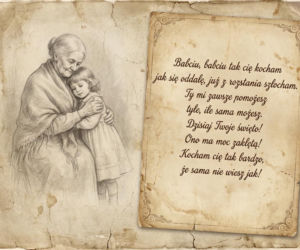 Babciu, babciu tak cię kocham
jak się oddalę, już z rozstania szlocham.
Ty mi zawsze pomożesz
tyle, ile sama możesz.
Dzisiaj Twoje święto!
Ono ma moc zaklętą!
Kocham cię tak bardzo,
że sama nie wiesz jak!